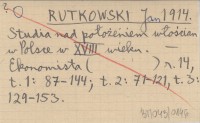 RUTKOWSKI Jan 1914.
Studia nad położeniem włościan
w Polsce w XVIII wieku. —
Ekonomista ( ) r. 14,
t. 1: 87-144; t. 2: 71-121, t. 3:
129-153.